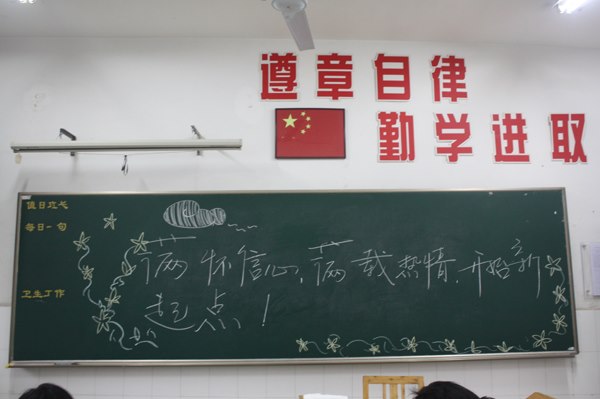 遵章自律
勤学进取
值日班长
每日一句
卫生工作
满怀信心,满载热情,开始新
起点!